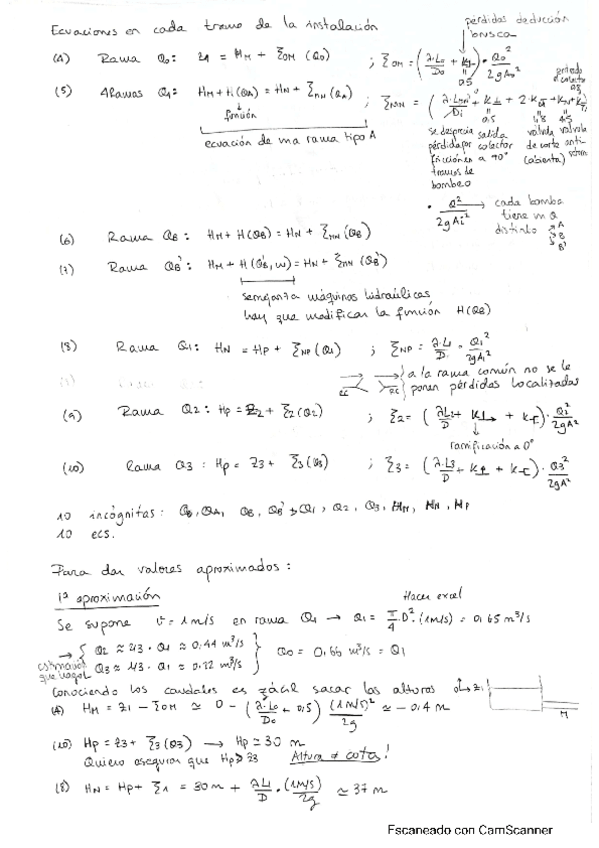 Ecuaciones en cada tramo de la instalación
pérdidas deducción brusca
(4) Rama Q0: z1 = HM + ξOM (Q0) ; ξOM = (λ·L0/D0 + k) · Q0²/2gA0²
0.5
(5) 4 Ramas QA: HM + H(QA) = HN + ξMN (QA) ; ξMN = (
función
ecuación de una rama tipo A
se desprecia pérdida por fricción en tramos de bombeo
salida colector a 90°
válvula de corte (abierta)
válvula anti-
· Q²/2gAi² → cada bomba tiene un Q distinto
(6) Rama QB: HM + H(QB) = HN + ξMN (QB)
(7) Rama QB': HM + H(QB', ω) = HN + ξMN (QB')
semejanza máquinas hidraúlicas
hay que modificar la función H(QB)
(8) Rama Q1: HN = HP + ξNP (Q1) ; ξNP = λ·L1/D · Q1²/2gA1²
a la rama común no se le ponen pérdidas localizadas
(9) Rama Q2: HP = z2 + ξ2 (Q2) ; ξ2 =
ramificación a 0°
(10) Rama Q3: HP = z3 + ξ3 (Q3) ; ξ3 =
10 incógnitas: Q0, QA, QB, QB', Q1, Q2, Q3, HM, HN, HP
10 ecs.
Para dar valores aproximados:
1ª aproximación
Hacer excel
Se supone v = 1 m/s en rama Q1 → Q1 = π/4 · D² · (1 m/s) = 0,65 m³/s
Q2 ≈ 2/3 · Q1 ≈ 0.44 m³/s
Q3 ≈ 1/3 · Q1 ≈ 0.22 m³/s
Q0 = 0,65 m³/s = Q1
Conociendo los caudales es fácil sacar las alturas
(4) HM = z1 − ξOM ≃ 0 − (λ·L0/D0 + 0,5) (1 m/s)²/2g ≃ −0,4 m
(10) HP = z3 + ξ3 (Q3) → HP ≃ 30 m
Quiero asegurar que HP > z3 Altura ≠ cota!
(8) HN = HP + ξ1 = 30 m + λL1/D · (1 m/s)²/2g ≃ 37 m
Escaneado con CamScanner